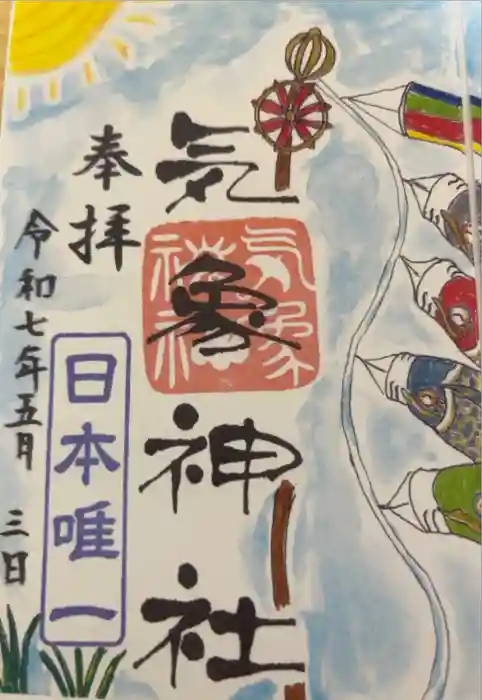 奉拝
気象神社
気象神社
日本唯一
令和七年五月三日